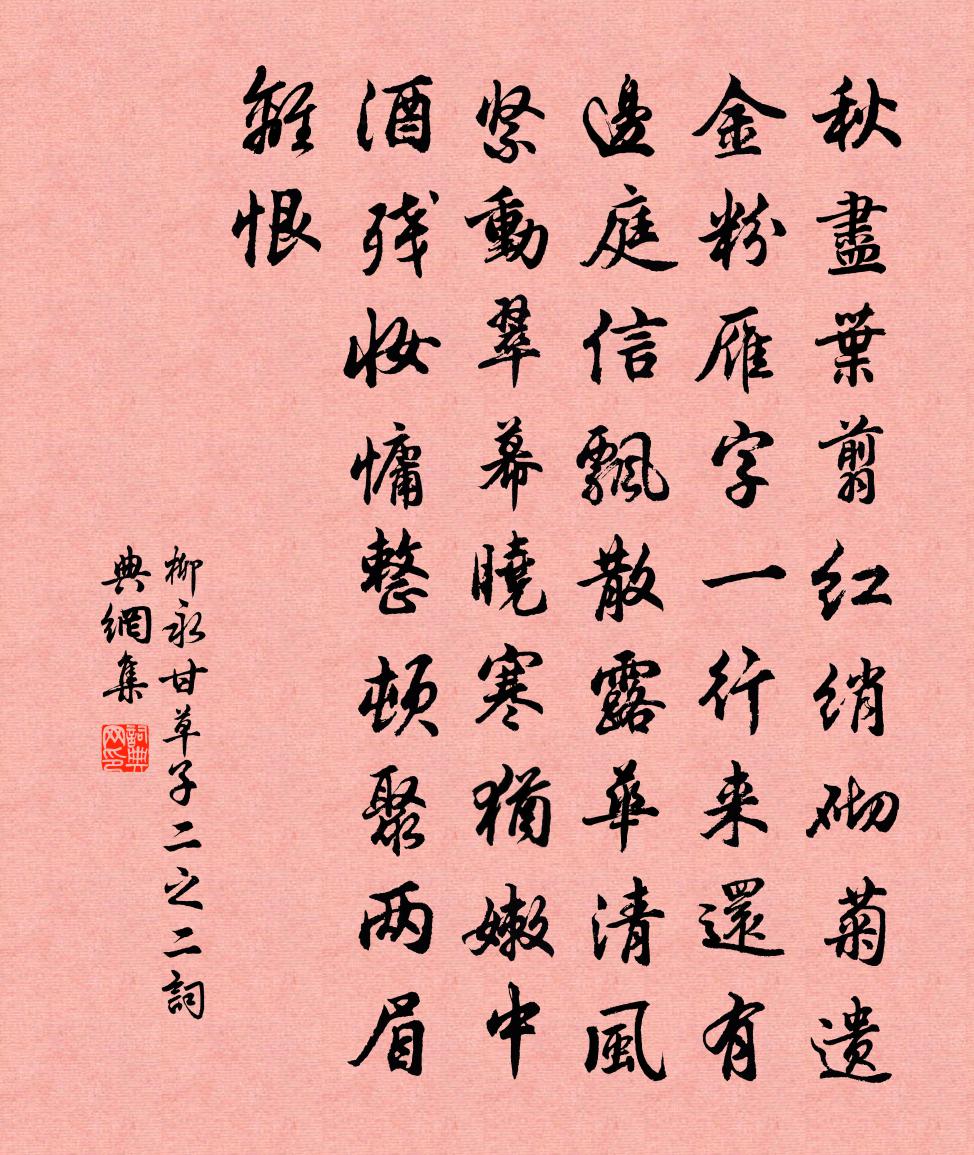 秋盡葉剪红綃砌菊遗
金粉雁字一行来還有
邊庭信飄散露華清風
紧動翠幕曉寒猶嫩中
酒残妝慵整頓聚两眉
離恨
柳永甘草子二之二詞
典網集
詞典网印